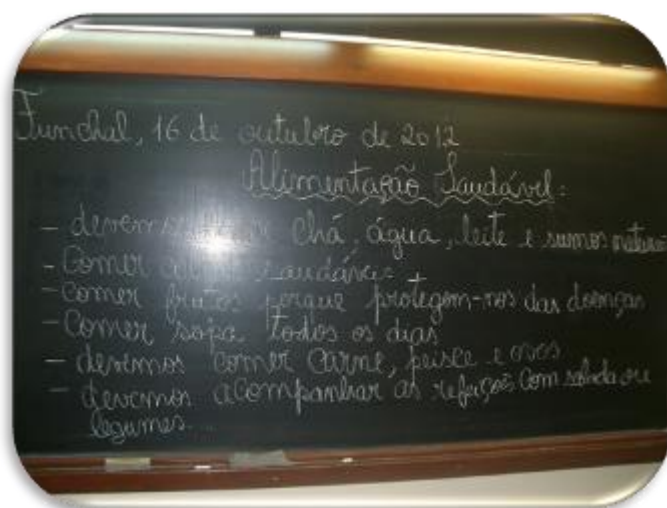 Funchal, 16 de outubro de 2012
Alimentação Saudável:
- devemos chá, água, leite e sumos naturais
- Comer saudáveis
- Comer frutos porque protegem-nos das doenças
- Comer sopa todos os dias
- devemos comer carne, peixe e ovos
- devemos acompanhar as refeições com salada ou
legumes.